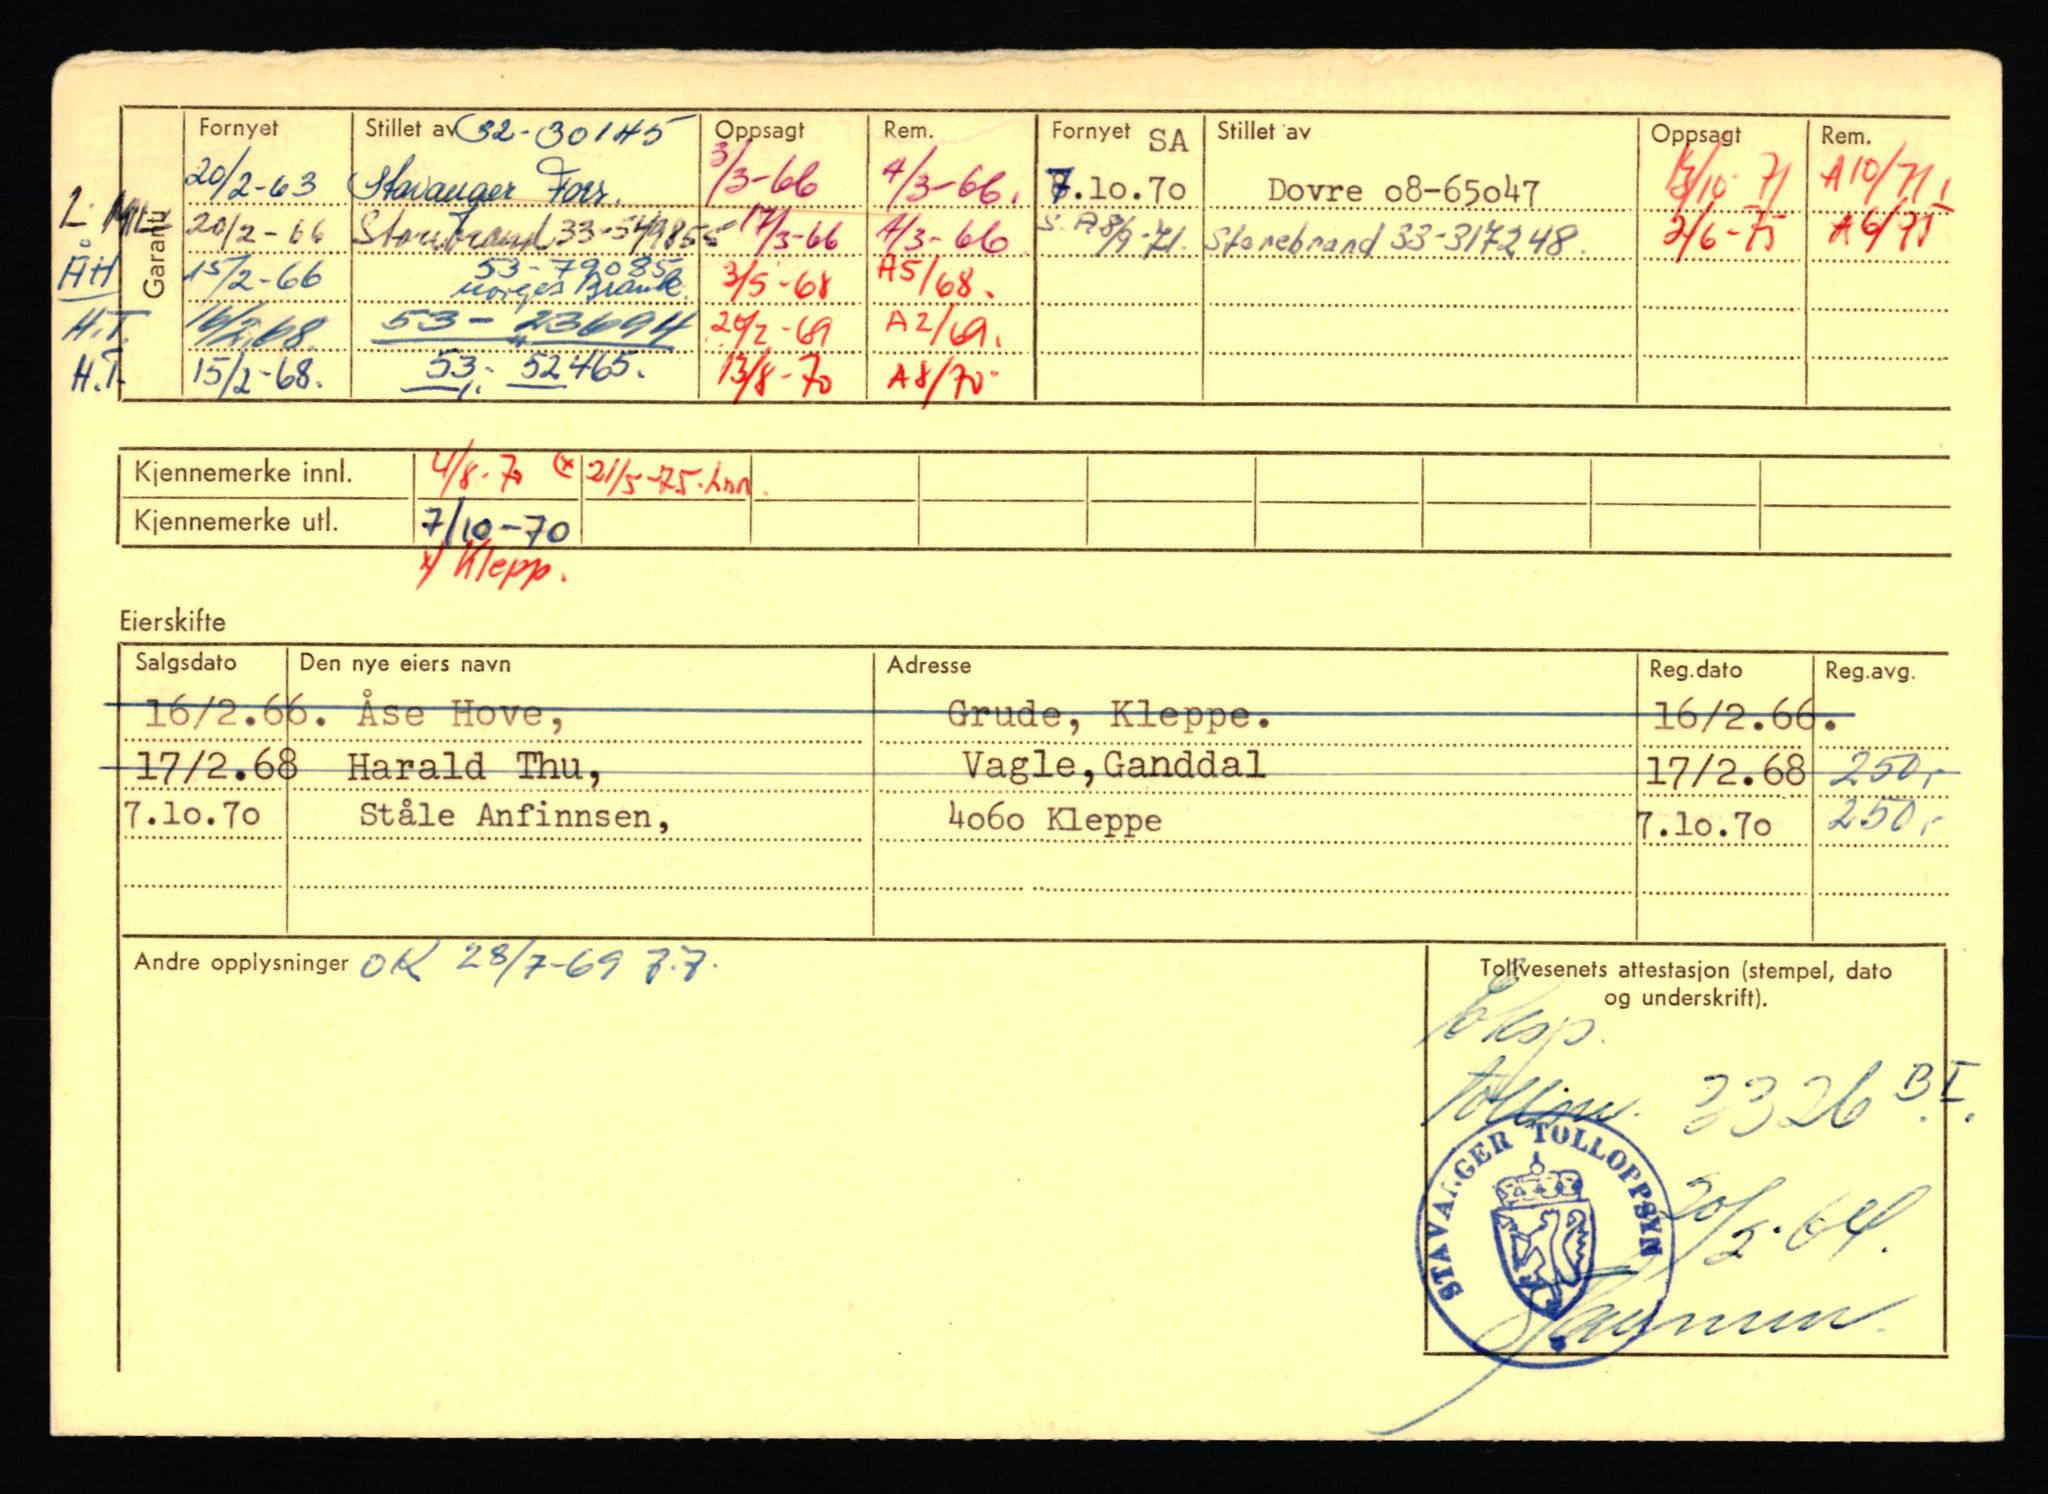 Garanti
Fornyet Stillet av 32-30145 Oppsagt Rem. Fornyet SA Stillet av Oppsagt Rem.
20/2-63 Stavanger Fors. 3/3-66 4/3-66. 7.10.70 Dovre 08-65047 10/71.
20/2-66 Storebrand 33-549855 17/3-66 4/3-66 8/9-71. Storebrand 33-317248. 2/6-75 A6/75
ÅH 15/2-66 53-79085 Norges Brannk. 3/5-68 A5/68.
H.T. 16/2.68. 53-23694 20/2-69 A2/69.
H.T. 15/2-68. 53-52465. 13/8-70 A8/70
Kjennemerke innl. 4/8-70 (x 21/5-75.
Kjennemerke utl. 7/10-70
x) Klepp.
Eierskifte
Salgsdato Den nye eiers navn Adresse Reg.dato Reg.avg.
16/2.66. Åse Hove, Grude, Kleppe. 16/2.66.
17/2.68 Harald Thu, Vagle,Ganddal 17/2.68 250,-
7.10.70 Ståle Anfinnsen, 4060 Kleppe 7.10.70 250,-
Andre opplysninger OK 28/7-69 J.J.
Tollvesenets attestasjon (stempel, dato
og underskrift).
Eksp.
3326 B.I.
STAVANGER TOLLOPPSYN
20/2-64.